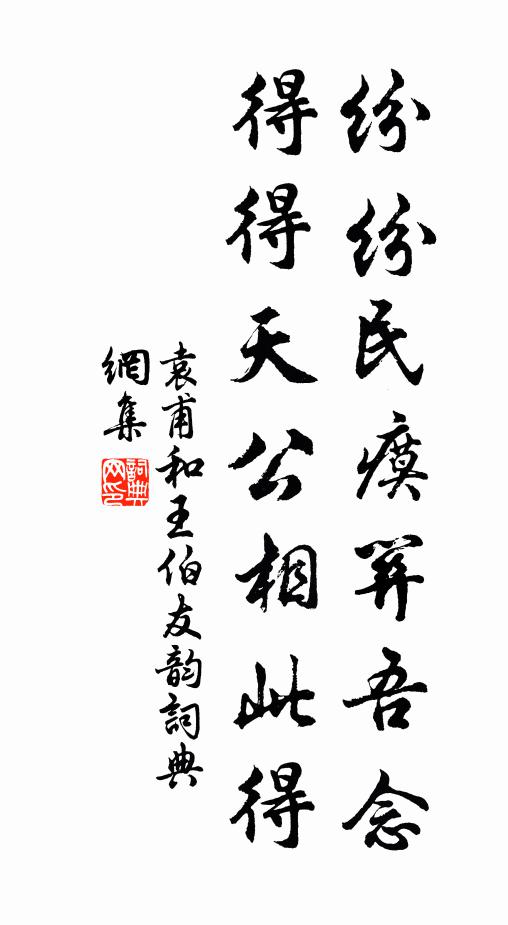 紛紛民瘼關吾念
得得天公相此得
袁甫和王伯友韵詞典
網集
詞典
网印